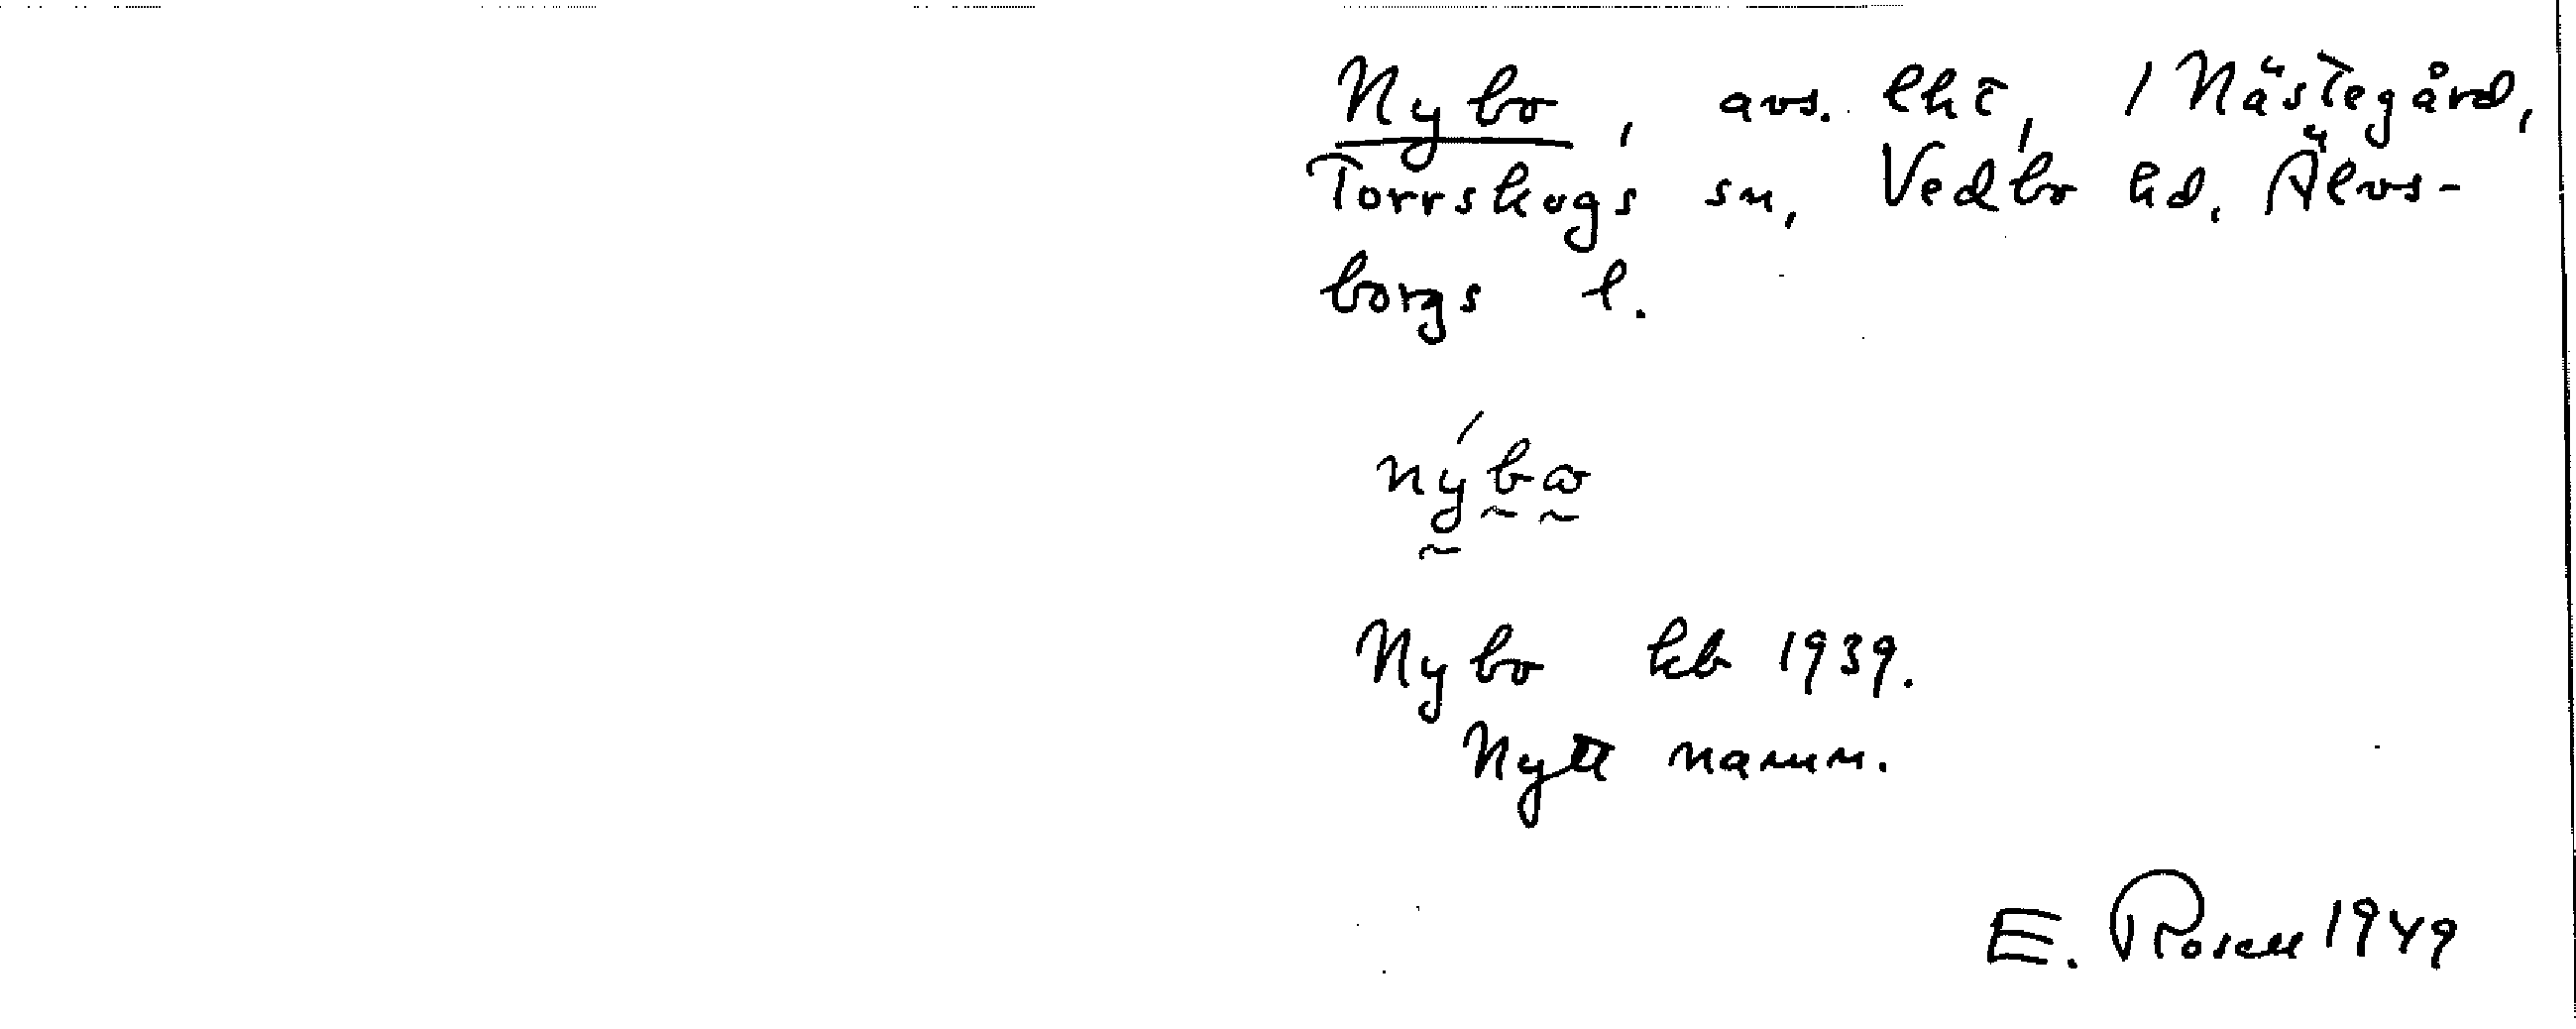 Nybo, avs. lht, 1 Nästegård,
Torrskogs sn, Vedbo hd, Älvs-
borgs l.
Nybo kb 1939.
Nytt namn.
E. Rosell 1949